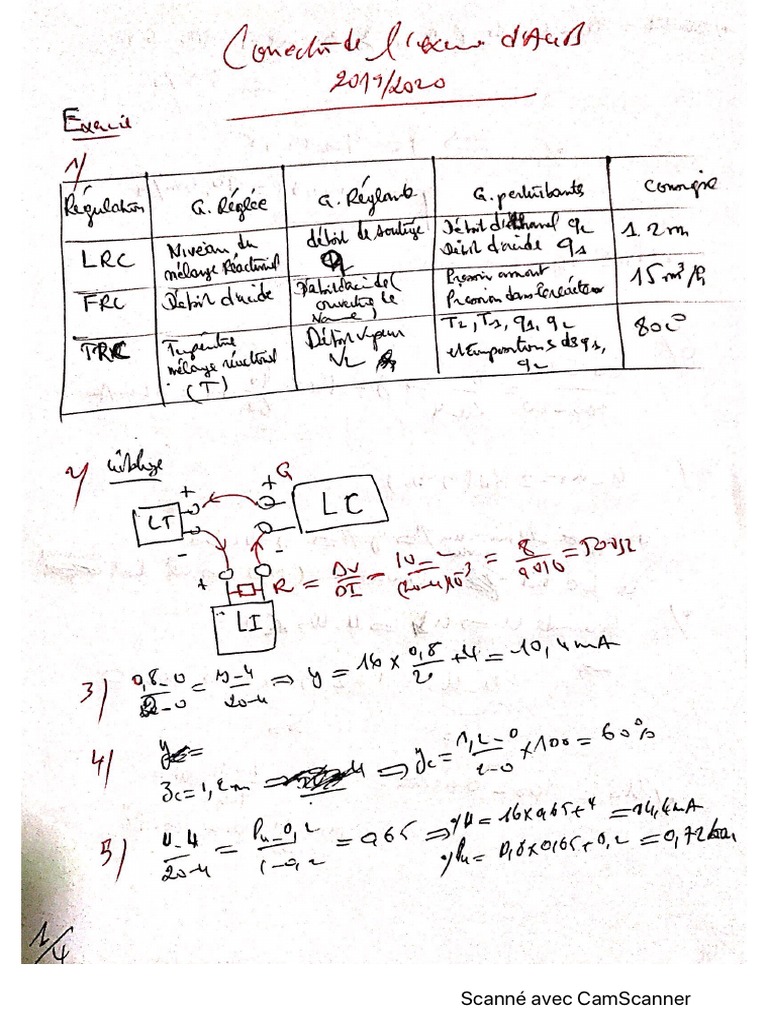 Correction de l'examen d'AUB
2019/2020
Exercice
1)
Régulation | G. Réglée | G. Réglante | G. perturbantes | Consigne
LRC | Niveau du mélange Réactionnel | débit de soutirage | Débit d'éthanol q2 Débit d'acide q1 | 1.2m
FRC | Débit d'acide | Débit d'acide ( ouverture de Vanne) | Pression amont Pression dans le réacteur | 15 m³/h
TRC | Température mélange réactionnel (T) | Débit vapeur V2 | T2, T1, q1, q2 et compositions de q1, q2 | 80 c°
2) câblage
+ G +
LT LC
- -
+ - R = ΔV/ΔI = 10-2/(20-4)10⁻³ = 8/
= 500Ω
LI
3) 0,8-0/2-0 = y-4/20-4 ⇒ y = 16 × 0,8/2 + 4 = 10,4 mA
4) y =
3c = 1,2m ⇒ yc = 1,2-0/2-0 × 100 = 60%
5) u-4/20-4 = Pu-0,2/1-0,2 = 0,65 ⇒ u = 16×0,65+4 = 14,4mA
Pu = 0,8×0,65+0,2 = 0,72 bar
1/4
Scanné avec CamScanner